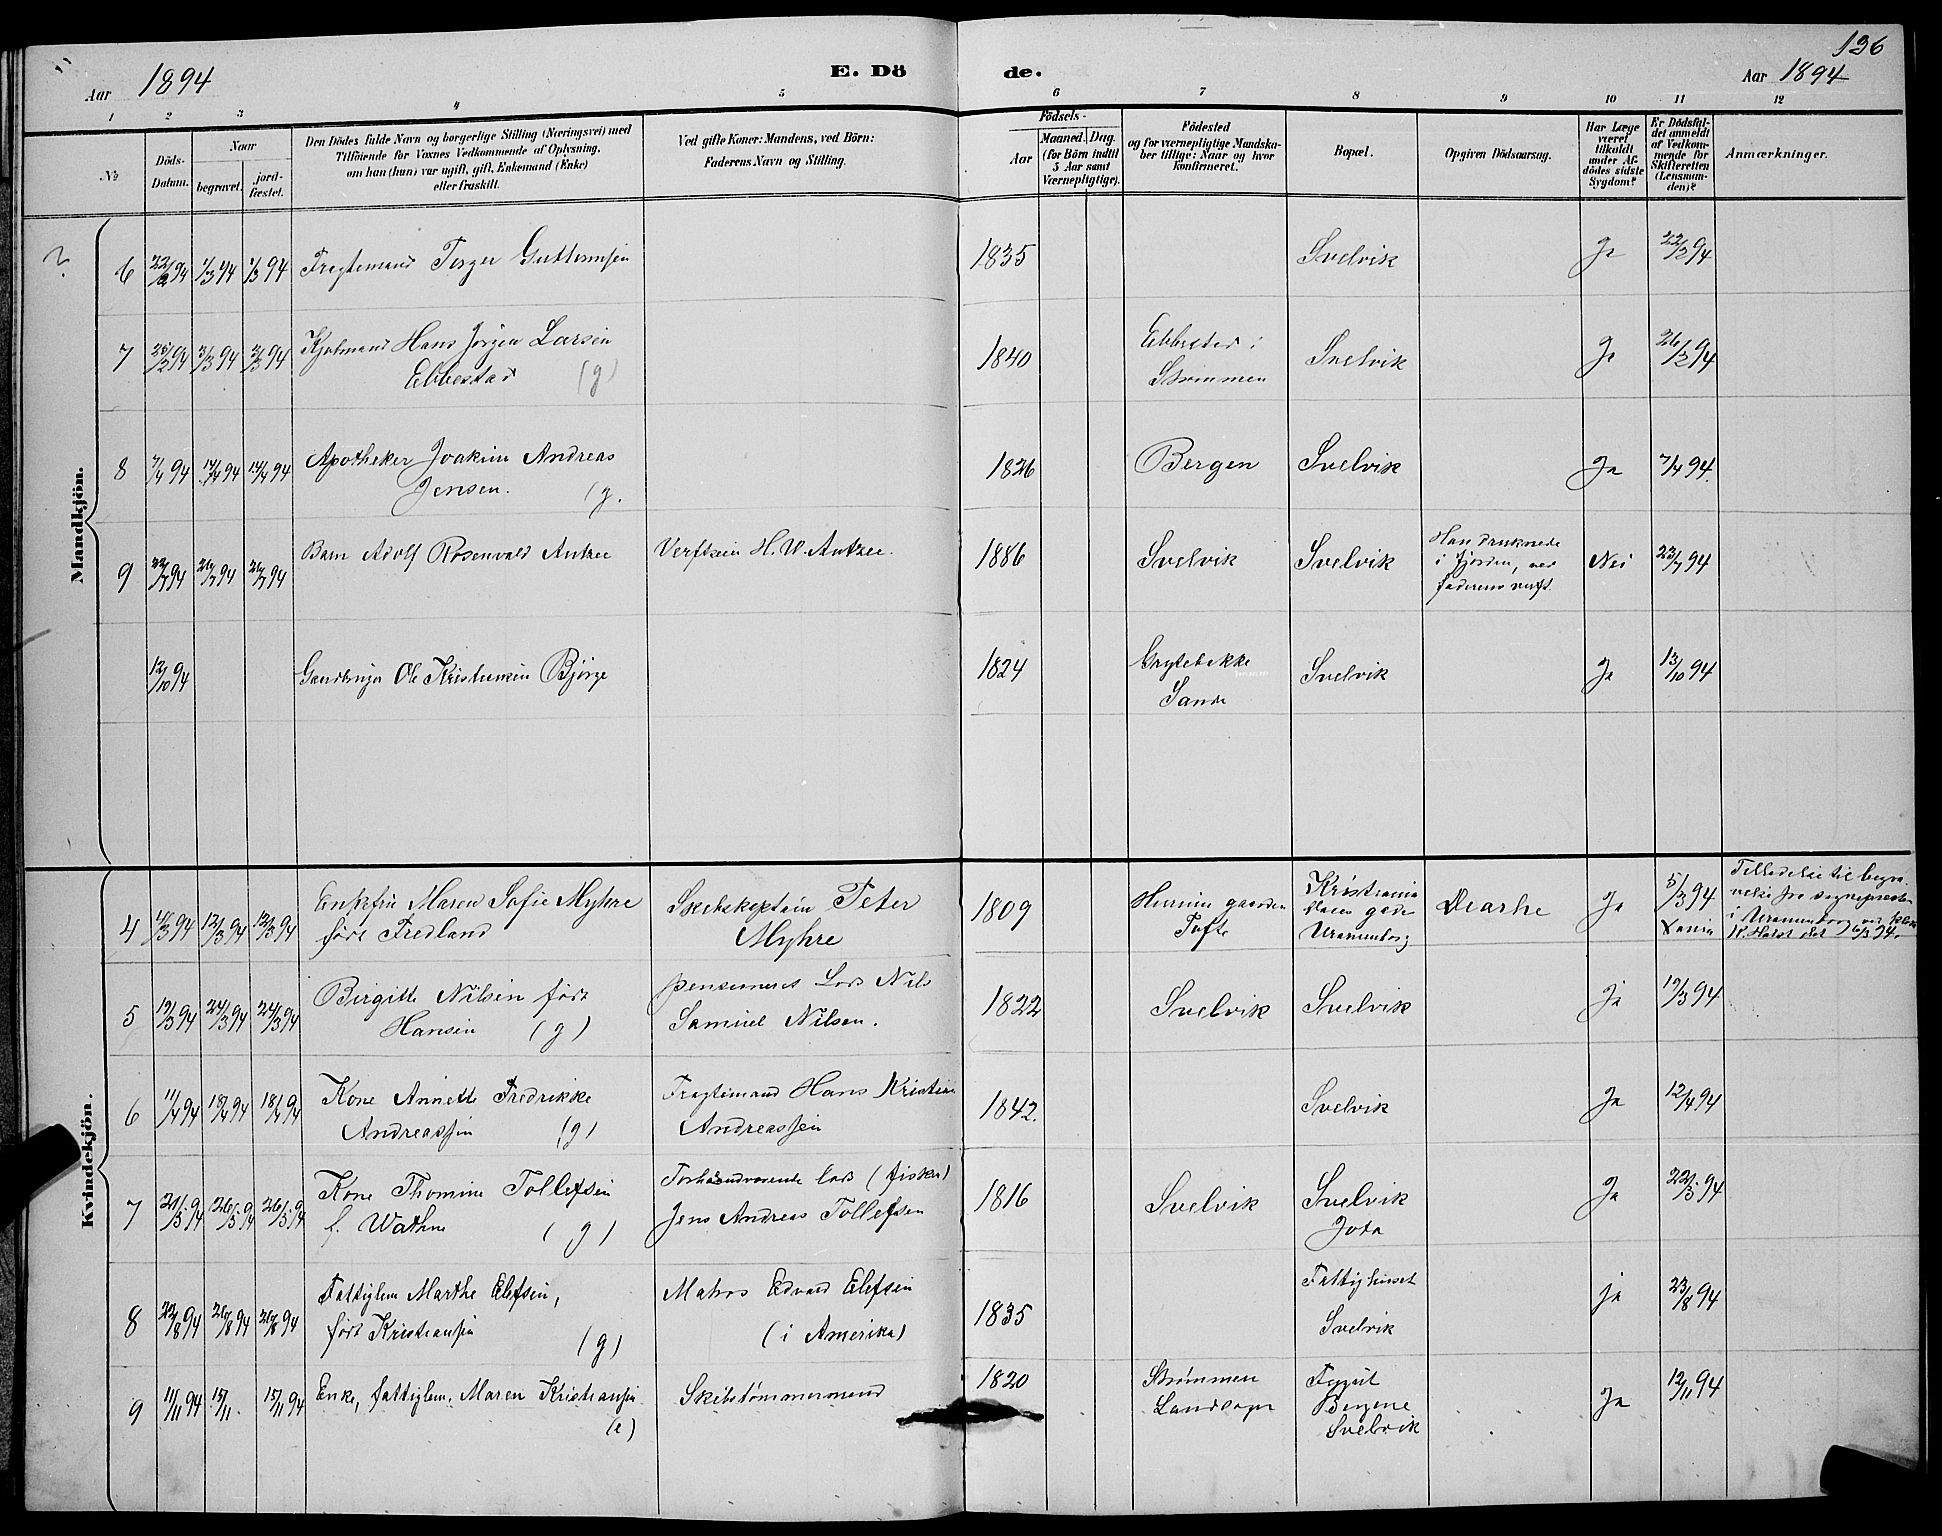 136
Aar 1894
E. Dö
de.
Aar 1894
1 2 3 4 5 6 7 8 9 10 11 12
№
Döds-
Datum.
Naar
begravet.
jord-
fæstet.
Den Dödes fulde Navn og borgerlige Stilling (Næringsvei) med
Tilföiende for Voxnes Vedkommende af Oplysning,
om han (hun) var ugift, gift, Enkemand (Enke)
eller fraskilt.
Ved gifte Koner: Mandens, ved Börn:
Faderens Navn og Stilling.
Födsels-
Aar
Maaned.
Dag.
(for Börn indtil
5 Aar samt
Værnepligtige).
Födested
og for værnepligtige Mandska-
ber tillige: Naar og hvor
konfirmeret.
Bopæl.
Opgiven Dödsaarsag.
Har Læge
været
tilkaldt
under Af-
dödes sidste
Sygdom?
Er Dödsfal-
det anmeldt
af Vedkom-
mende for
Skifteretten
(Lensman-
den)?
Anmærkninger.
Mandkjön.
6 22/2 94 1/3 94 1/3 94 Fragtemand Torger Guttormsen 1835 Svelvik Ja 22/2 94
7 25/2 94 3/3 94 3/3 94 Kjøbmand Hans Jørgen Larsen 1840 Ebbestad i Svelvik Ja 26/2 94
Ebbestad (g) Strømmen
8 7/4 94 14/4 94 14/4 94 Apotheker Joakim Andreas 1826 Bergen Svelvik Ja 7/4 94.
Jensen. (g.
9 22/7 94 26/7 94 26/7 94 Barn Adolf Rosenvald Antzee Verftseier H. W. Antzee. 1886 Svelvik Svelvik Han druknede Nei 23/7 94
i Fjorden, ved
faderens verft.
12/10 94 Ole Kristensen Bjørge 1824 Grytebekke Svelvik Ja 13/10 94
Sande
Kvindekjön.
4 4/3 94 12/3 94 12/3 94 Enkefru Maren Sofie Myhre Skibskaptein Peter 1809 Hurum gaarden Kristiania Dearhe Ja 5/3 94 Tilladelse til begra-
født Fredland Myhre Tofte Uranienborg Xania velse fra sognepresten
i Uranienborg
5 19/3 94 24/3 94 24/3 94 Birgitte Nilsen født pensioneret Lods Nils 1822 Svelvik Svelvik ja 19/3 94
Hansen (g) Samuel Nilsen.
6 11/4 94 18/4 94 18/4 94 Kone Annette Fredrikke Fragtemand Hans Kristian 1842. Svelvik Ja 12/4 94
Andreassen (g) Andreassen
7 21/5 94 26/5 94 26/5 94 Kone Thomine Tollefsen Forhenværende Lods (fisker) 1816 Svelvik Svelvik Ja 22/5 94
f. Wathne (g) Jens Andreas Tollefsen
8 22/8 94 26/8 94 26/8 94 Fattiglem Marthe Elefsen, Matros Edvard Elefsen 1835 Fattighuset ja 23/8 94
født Kristiansen (g) (i Amerika) Svelvik
9 11/11 94 15/11. 15/11 94 Enke, fattiglem. Maren Kristiansen Skibstømmermand 1820 Strømmen Ja 12/11 94
(e) Landsogn Bergene
Svelvik